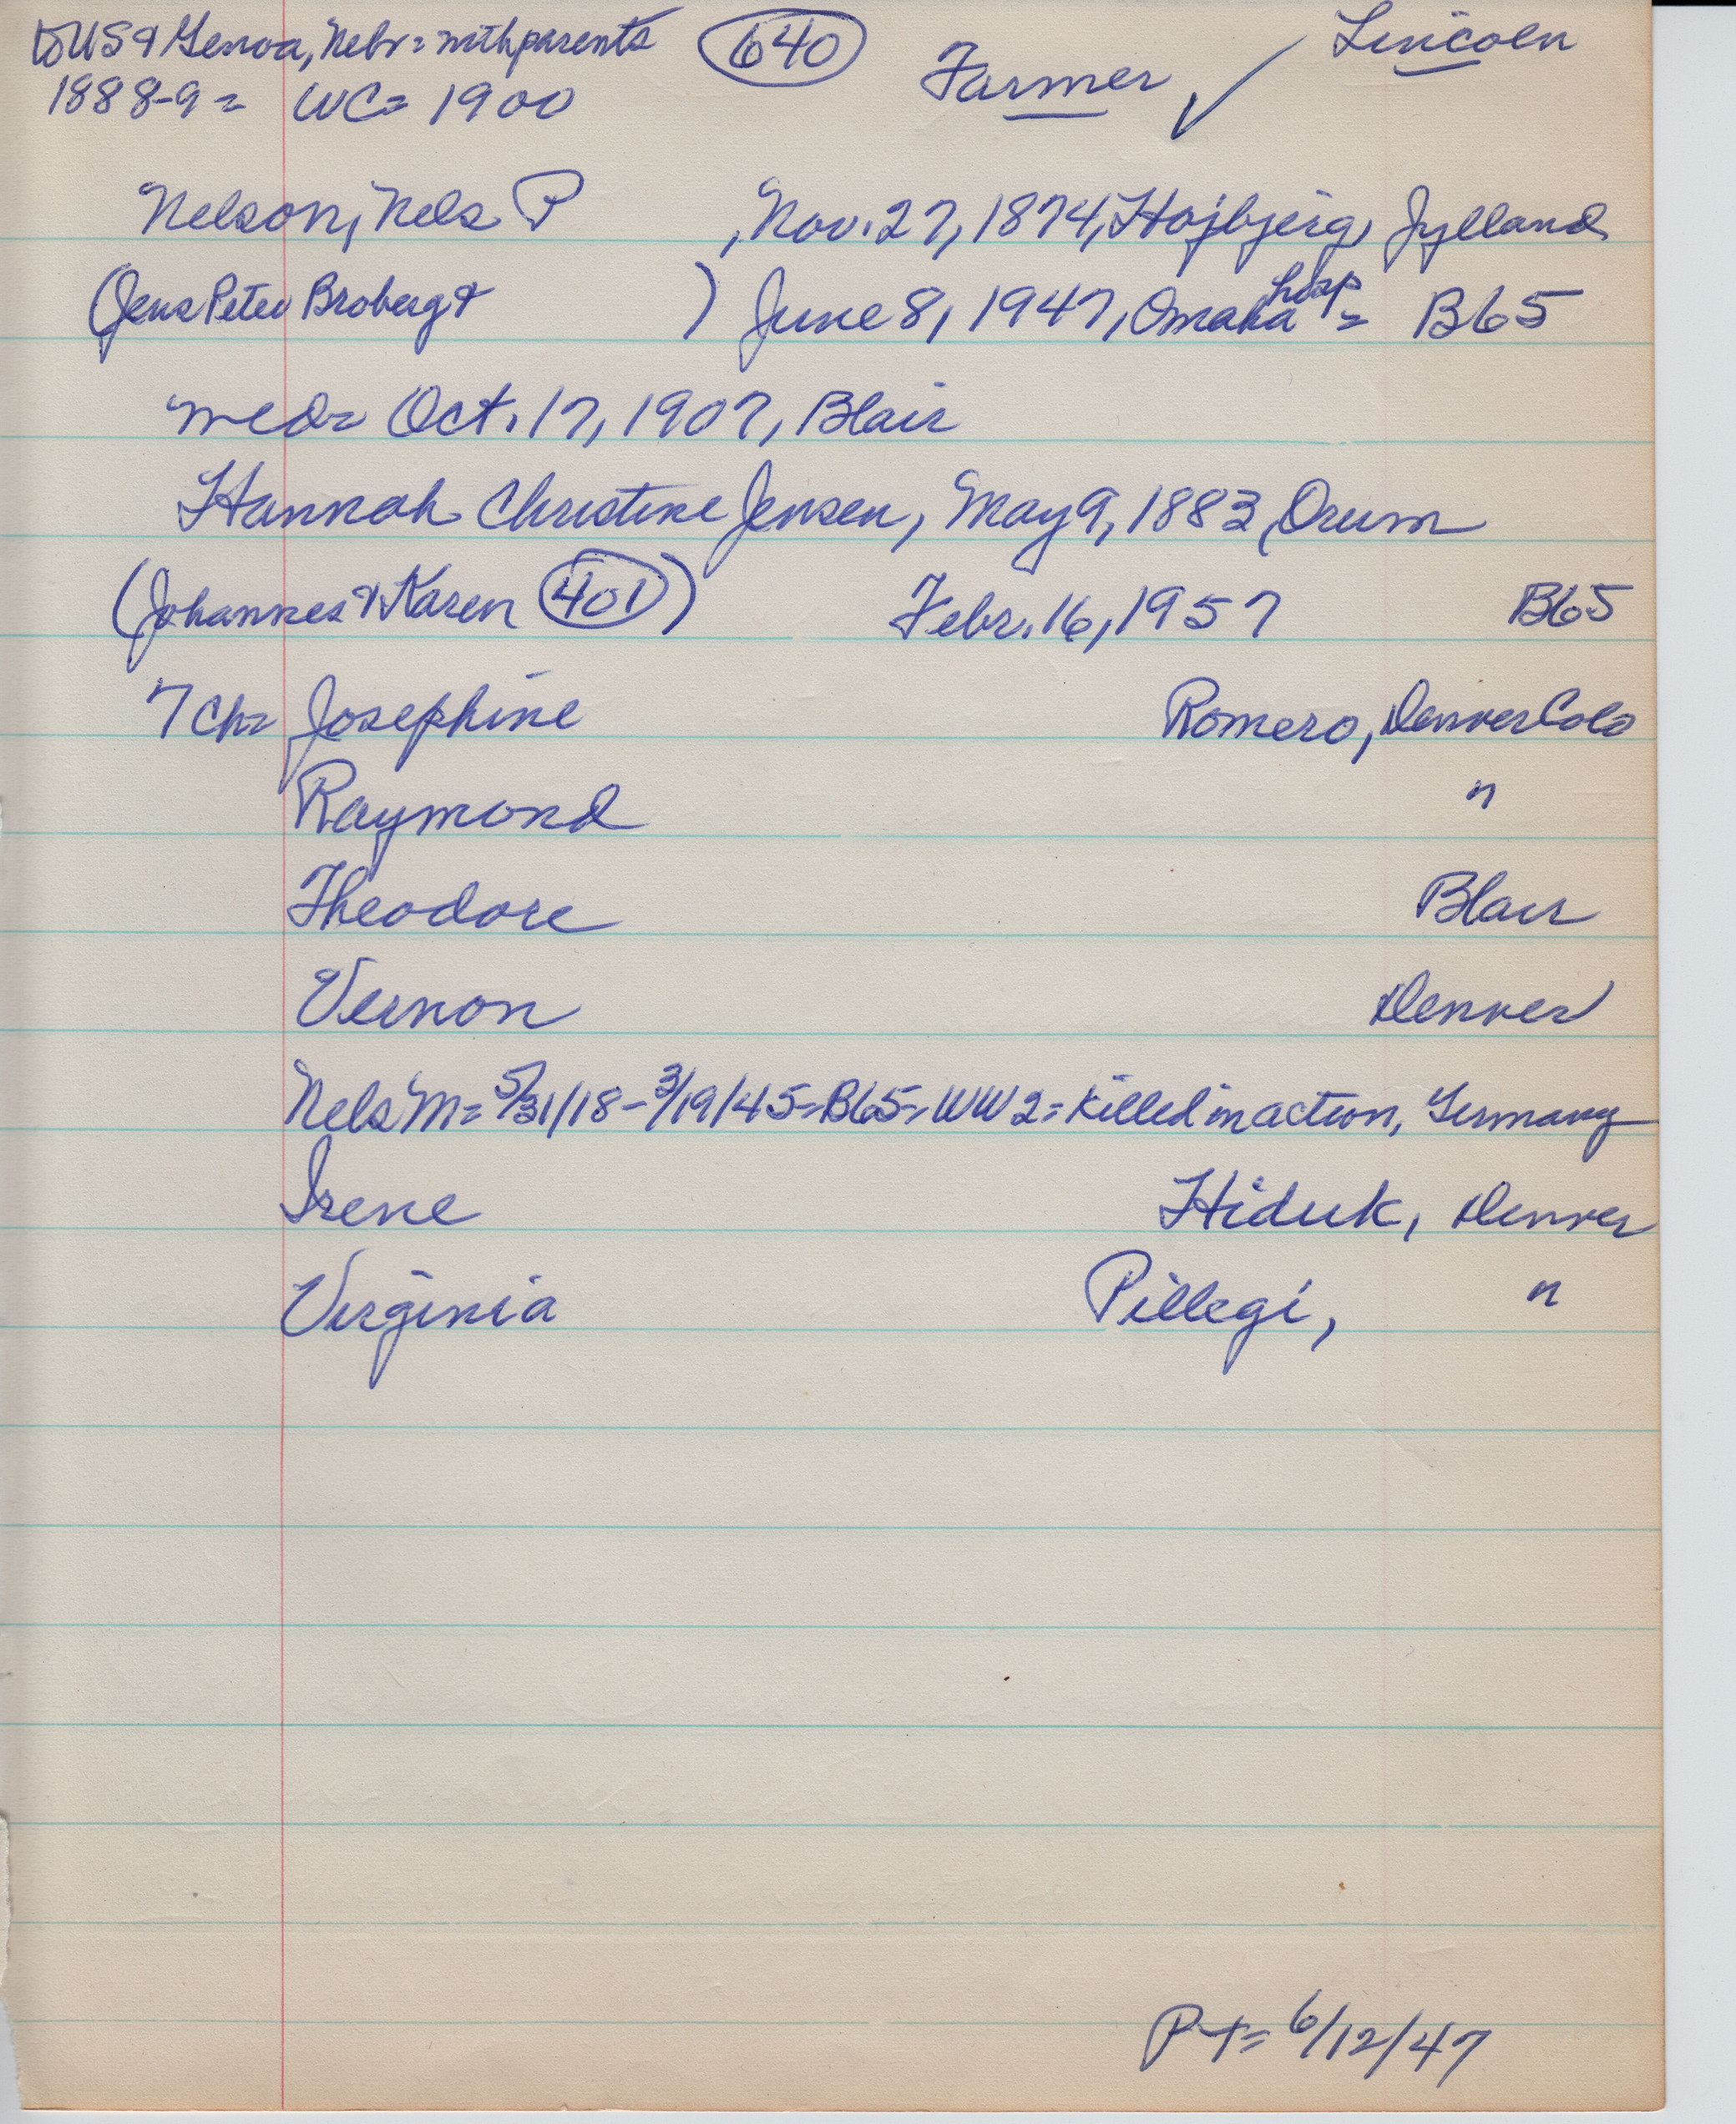 to US & Genoa, Nebr = with parents 640 Farmer ✓ Lincoln
1888-9 = WC = 1900
Nelson, Nels P , Nov. 27, 1874, Hojbjerg, Jylland
(Jens Peter Broberg & ) June 8, 1947, Omaha hosp = B65
med = Oct. 17, 1907, Blair
Hannah Christine Jensen, May 9, 1883, Orum
(Johannes & Karen 401) Febr. 16, 1957 B65
7 Ch = Josephine Romero, Denver Colo
Raymond "
Theodore Blair
Vernon Denver
Nels M = 5/31/18 - 3/19/45 = B65 = WW2 = Killed in action, Germany
Irene Hiduk, Denver
Virginia Pillegi, "
P-T = 6/12/47